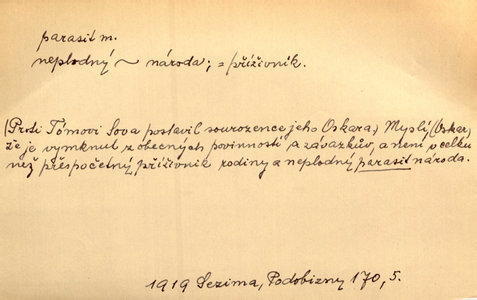 parasit m.
neplodný ~ národa; = příživník.
(Proti Tómovi Sova postavil sourozence jeho Oskara) Myslý (Oskar,
že je vymknut z obecných povinností a závazkův, a není v celku
než přespočetný příživník rodiny a neplodný parasit národa.
1919 Sezima, Podobizny 170, 5.